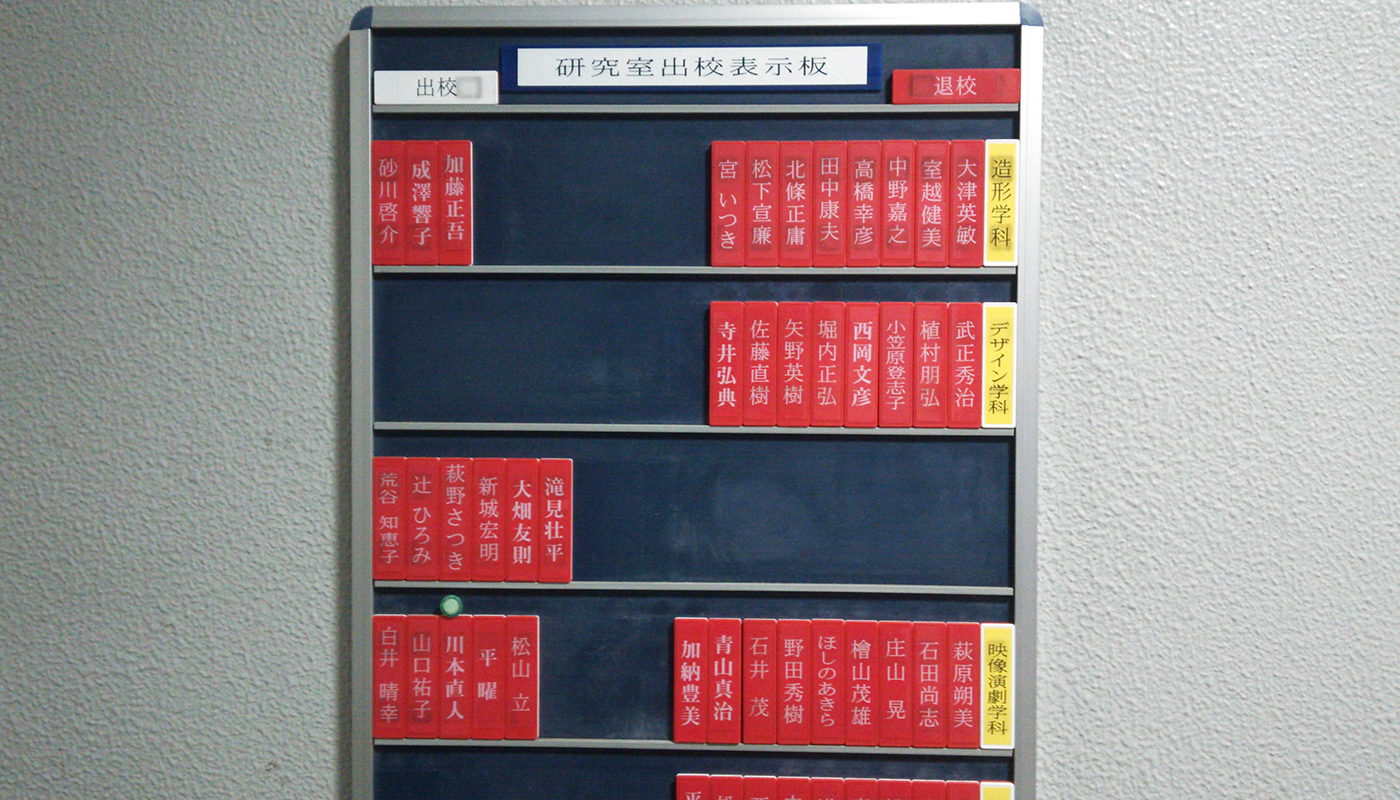 研究室出校表示板
出校
退校
造形学科
大津英敏
室越健美
中野嘉之
高橋幸彦
田中康夫
北條正庸
松下宣廉
宮 いつき
加藤正吾
成澤響子
砂川啓介
デザイン学科
武正秀治
植村朋弘
小笠原登志子
西岡文彦
堀内正弘
矢野英樹
佐藤直樹
寺井弘典
滝見壮平
大畑友則
新城宏明
萩野さつき
辻 ひろみ
荒谷 知恵子
映像演劇学科
萩原朔美
石田尚志
庄山 晃
檜山茂雄
ほしのあきら
野田秀樹
石井 茂
青山真治
加納豊美
松山 立
平 曜
川本直人
山口祐子
白井 晴幸